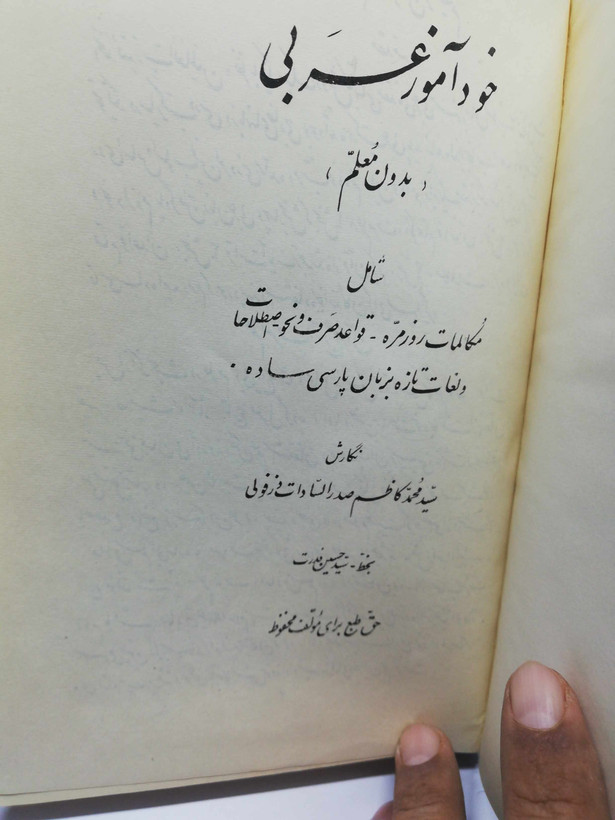 خودآموز عَربی
( بدون مُعلّم )
شامل
مُکالمات روزمرّه - قواعد صَرف و نحو اصطلاحات
و لغات تازه بزبان پارسی ساده .
نگارش
سیّد مُحمّد کاظم صدرالسّادات دزفولی
بخطّ - سیّد حسین قدرت
حقّ طبع برای مُؤلّف محفوظ